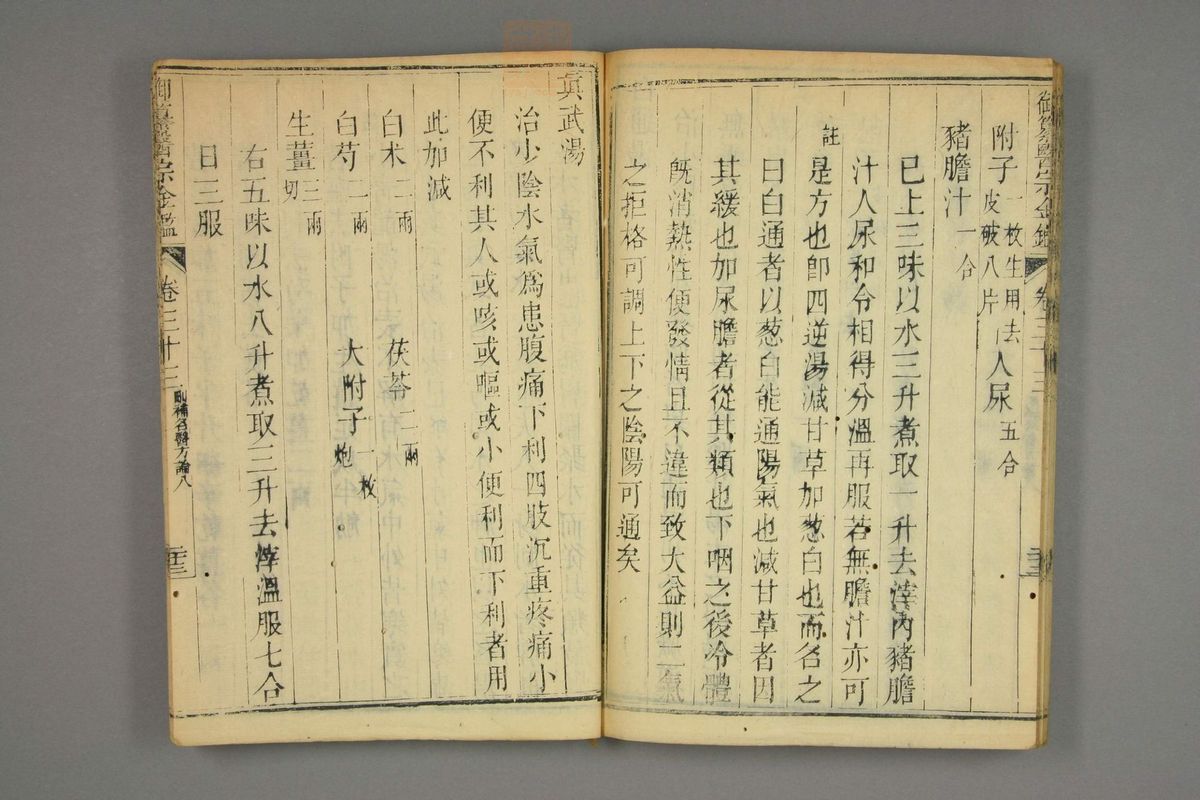 御纂醫宗金鑑 卷三十三
附子一枚生用去皮破八片 人尿五合
豬膽汁一合
已上三味以水三升煮取一升去滓內豬膽
汁人尿和令相得分溫再服若無膽汁亦可
註
是方也卽四逆湯減甘草加葱白也而名之
曰白通者以葱白能通陽氣也減甘草者因
其緩也加尿膽者從其類也下咽之後冷體
旣消熱性便發情且不違而致大益則二氣
之拒格可調上下之陰陽可通矣
眞武湯
治少陰水氣爲患腹痛下利四肢沉重疼痛小
便不利其人或咳或嘔或小便利而下利者用
此加減
白术二兩 茯苓三兩
白芍三兩 大附子一枚炮
生薑三兩切
右五味以水八升煮取三升去滓溫服七合
日三服
御纂醫宗金鑑 卷三十三 刪補名醫方論八 二十三